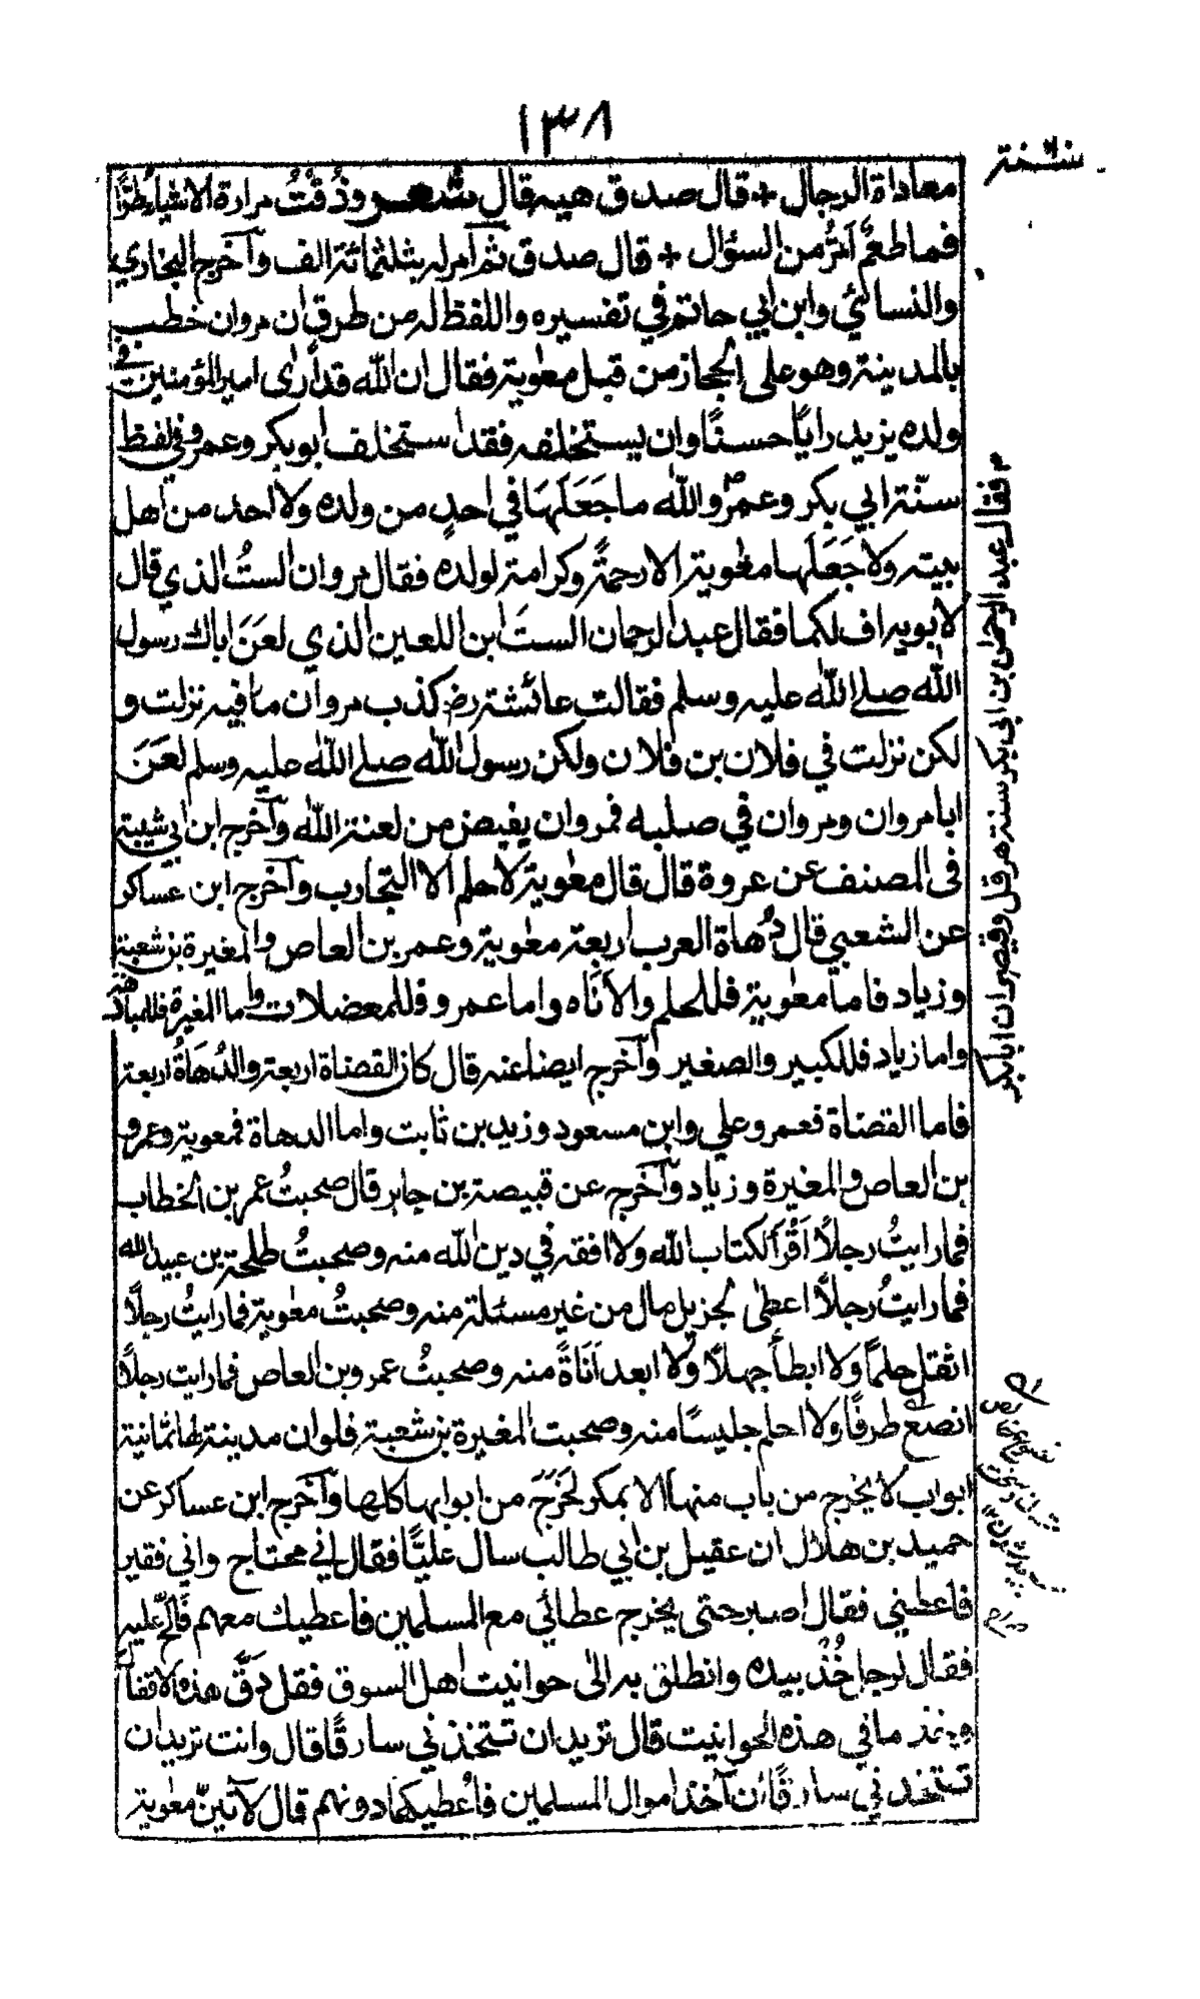 ١٣٨
معاداة الرجال + قال صدق هيه قال شعر وذُقتُ مرارة الاشياء طُرًّا
فما طعمٌ اَمَرُّ من السؤال + قال صدق ثم امر له بثلثمائة الف وآخرج البخاري
والنسائي وابن ابي حاتم في تفسيره واللفظ له من طرق ان مروان خطب
بالمدينة وهو على الحجاز من قبل معٰوية فقال ان الله قد ارى امير المؤمنين في
ولده يزيد رايًا حسنًا وان يستخلفه فقد استخلف ابو بكر وعمر وفي لفظ
سنّة ابي بكر وعمر والله ما جَعَلَهَا في احدٍ من ولده ولا احد من اهل
بيته ولا جَعَلَها معٰوية الا رحمةً وكرامة لولده فقال مروان الستُ الذي قال
لابويه اف لكما فقال عبد الرحمان الستَ ابن اللعين الذي لعَنَ اباك رسول
الله صلے الله عليه وسلم فقالت عائشة رض كذب مروان ما فيه نزلت و
لكن نزلت في فلان بن فلان ولكن رسول الله صلے الله عليه وسلم لعَنَ
ابا مروان ومروان في صلبه فمروان يفيض من لعنة الله وآخرج ابن ابي شيبة
فى المصنف عن عروة قال قال معٰوية لا حلم الا التجارب وآخرج ابن عساكر
عن الشعبي قال دُهاة العرب اربعة معٰوية وعمر بن العاص والمغيرة بن شعبة
وزياد فاما معٰوية فللحلم والاَنَاه واما عمرو فللمعضلات واما المغيرة فللمبادهة
واما زياد فللكبير والصغير وآخرج ايضا عنه قال كان القضاة اربعة والدُهَاةُ اربعة
فاما القضاة فعمر وعلي وابن مسعود وزيد بن ثابت واما الدهاة فمعوية وعمرو
بن العاص والمغيرة وزياد وآخرج عن قبيصة بن جابر قال صحبتُ عمر بن الخطاب
فما رايتُ رجلًا اَقْرَأ لكتاب الله ولا افقه في دين الله منه وصحبتُ طلحة بن عبيد الله
فما رايتُ رجلًا اعطى لجزيل مال من غير مسئلة منه وصحبتُ معٰوية فما رايتُ رجلًا
اثقل حلمًا ولا ابطأ جهلًا ولا ابعد اَنَاةً منه وصحبتُ عمرو بن العاص فما رايت رجلًا
انصع طرفًا ولا احلم جليسًا منه وصحبت المغيرة بن شعبة فلو ان مدينة لها ثمانية
ابواب لا يخرج من باب منها الا بمكر لخَرَجَ من ابوابها كلها وآخرج ابن عساكر عن
حميد بن هلال ان عقيل بن ابي طالب سال عليًّا فقال اني محتاج واني فقير
فاعطني فقال اصبر حتى يخرج عطائي مع المسلمين فاعطيك معهم فَالَحَّ عليه
فقال لرجل خُذْ بيده وانطلق به الى حوانيت اهل السوق فقل دَقّ هذه الاقفال
وخذ ما في هذه الحوانيت قال تريد ان تتخذني سارقًا قال وانت تريد ان
تتخذني سارقًا ان آخذ اموال المسلمين فاُعطيكها دونهم قال لآتينّ معٰوية
فقال عبد الرحمٰن بن ابى بكر سنة هرقل وقيصر ان ابا بكر